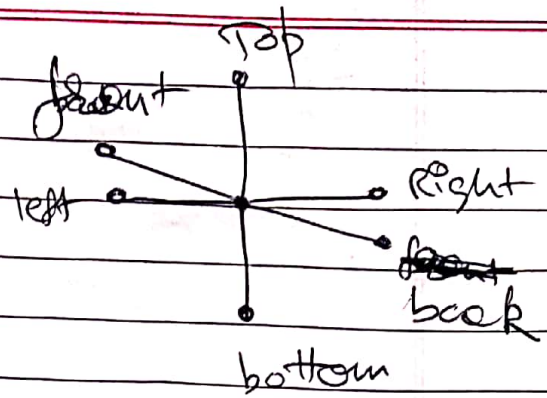 Top
front
left
Right
back
bottom